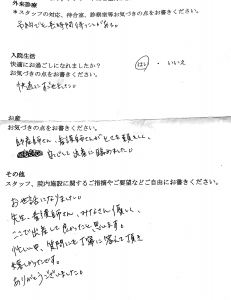 外来診療
＊スタッフの対応、待合室、診察室等お気づきの点をお書きください。
入院生活
快適にお過ごしになれましたか？ はい ・ いいえ
お気づきの点をお書きください。
快適に
お産
お気づきの点をお書きください。
助産師さん、看護師さんがとても頼もしく、
安心して出産に臨めました。
その他
スタッフ、院内施設に関するご指摘やご要望などご自由にお書きください。
お世話になりました。
先生、看護師さん、みなさん優しく、
ここで出産して良かったと思います。
忙しい中、質問にも丁寧に答えて頂き
嬉しかったです。
ありがとうございました。